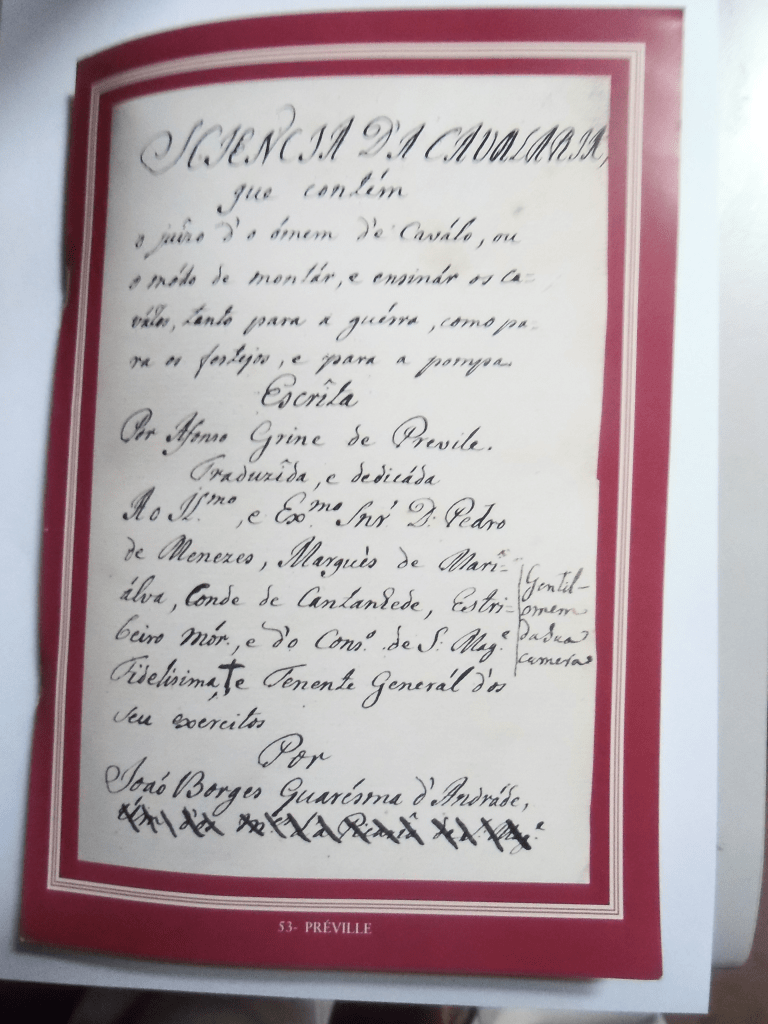 SCIENCIA D'A CAVALARIA,
que contém
o juîzo d'o ómem d'e Caválo, ou
o módo de montár, e ensinár os ca=
válos, tanto para a guérra, como pa=
ra os festejos, e para a pompa.
Escrîta
Por Afonso Grine de Previle.
Traduzîda, e dedicáda
Ao Il.mo, e Ex.mo Snr' D: Pedro
de Menezes, Marquès de Mari=
álva, Conde de Cantanhede, Estri=
beiro mór., e d'o Cons.o de S: Mag.e
Gentil=
omem
da sua
camera
Fidelisima, † e Tenente Generál d'os
seu exercitos
Por
Joaó Borges Guarésma d'Andráde,
d'a Picaria de S: Mag.e
53- PRÉVILLE